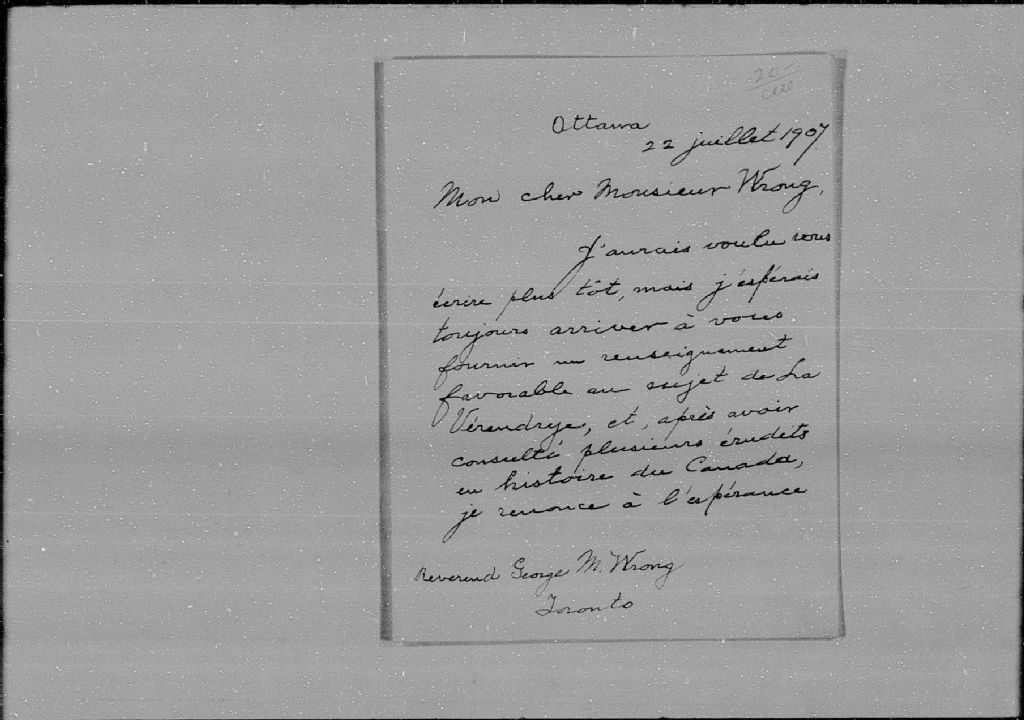 20
Ottawa
22 juillet 1907
Mon cher Monsieur Wrong,
J'aurais voulu vous
écrire plus tôt, mais j'espérais
toujours arriver à vous
fournir un renseignement
favorable au sujet de La
Vérendrye, et, après avoir
consulté plusieurs érudits
en histoire du Canada,
je renonce à l'espérance
Reverend George M. Wrong
Toronto